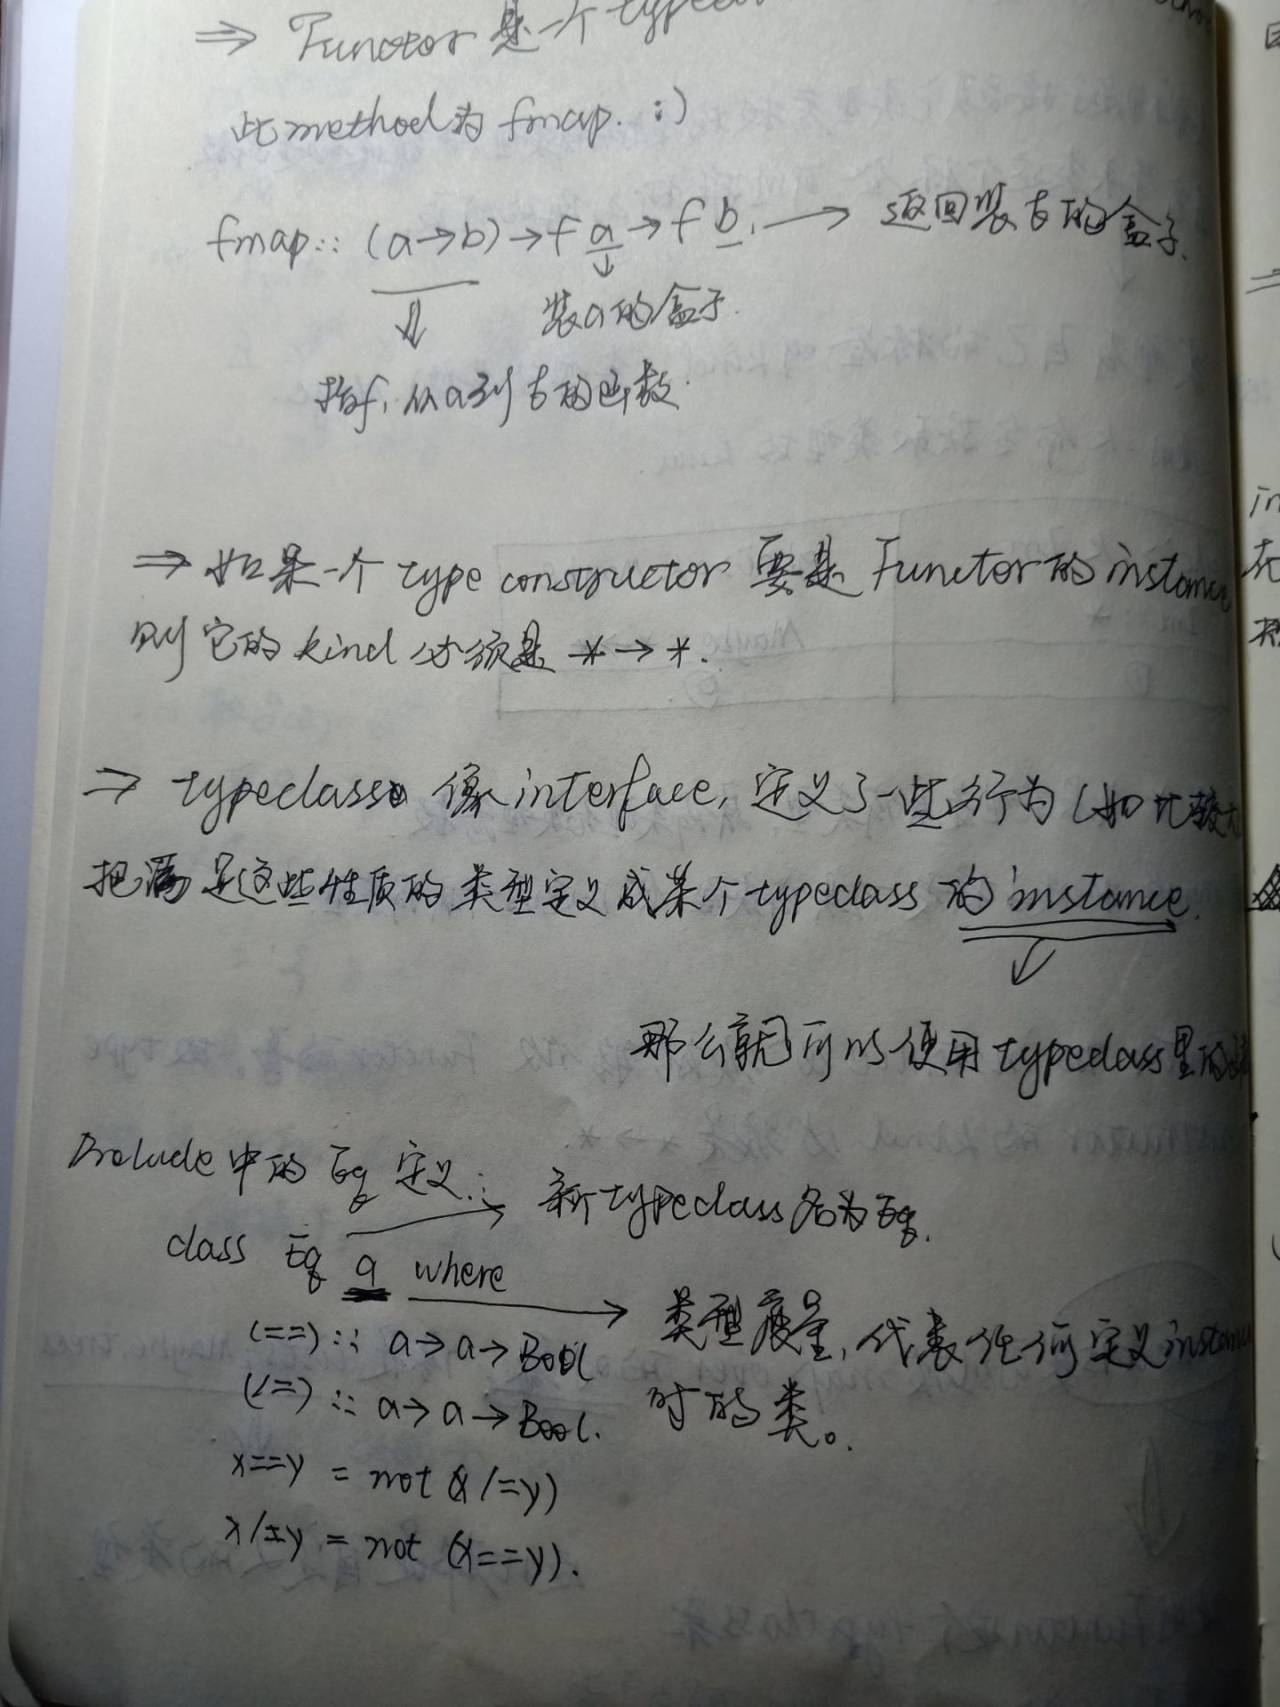 ⇒ Functor 是一个 typecla
此 method 为 fmap. :)
fmap :: (a→b)→f a→f b, → 返回装 b 的盒子.
装 a 的盒子.
指 f, 从 a 到 b 的函数.
⇒ 如果一个 type constructor 要是 Functor 的 instance
则它的 kind 必须是 *→*.
⇒ typeclass 像 interface, 定义了一些行为 (如比较大
把满足这些性质的类型定义成某个 typeclass 的 instance.
那么就可以使用 typeclass 里的
Prelude 中的 Eq 定义:
→ 新 typeclass 名为 Eq.
class Eq a where
→ 类型变量, 代表任何定义 instance
时的类。
(==) :: a→a→Bool
(/=) :: a→a→Bool.
x==y = not (x/=y)
x/=y = not (x==y).